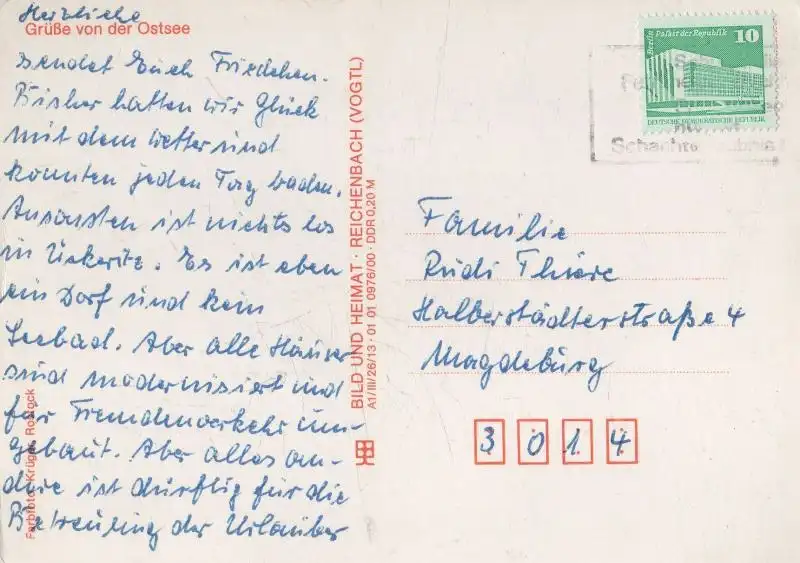 Herzliche
Grüße von der Ostsee
sendet Euch Friedchen.
Bisher hatten wir Glück
mit dem Wetter und
konnten jeden Tag baden.
Ansonsten ist nichts los
in Ückeritz. Es ist eben
ein Dorf und kein
Seebad. Aber alle Häuser
sind modernisiert und
für Fremdenverkehr um-
gebaut. Aber alles an-
dere ist dürftig für die
Betreuung der Urlauber
Farbfoto: Krüger, Rostock
BILD UND HEIMAT · REICHENBACH (VOGTL)
A1/III/26/13 · 01 01 0976/00 · DDR 0,20 M
Berlin Palast der Republik 10
DEUTSCHE DEMOKRATISCHE REPUBLIK
Familie
Rudi Thiere
Halberstädterstraße 4
Magdeburg
3014